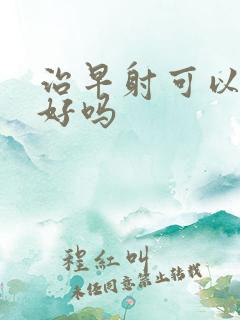 治早射可以
好吗
程红叫
未经同意禁止转载